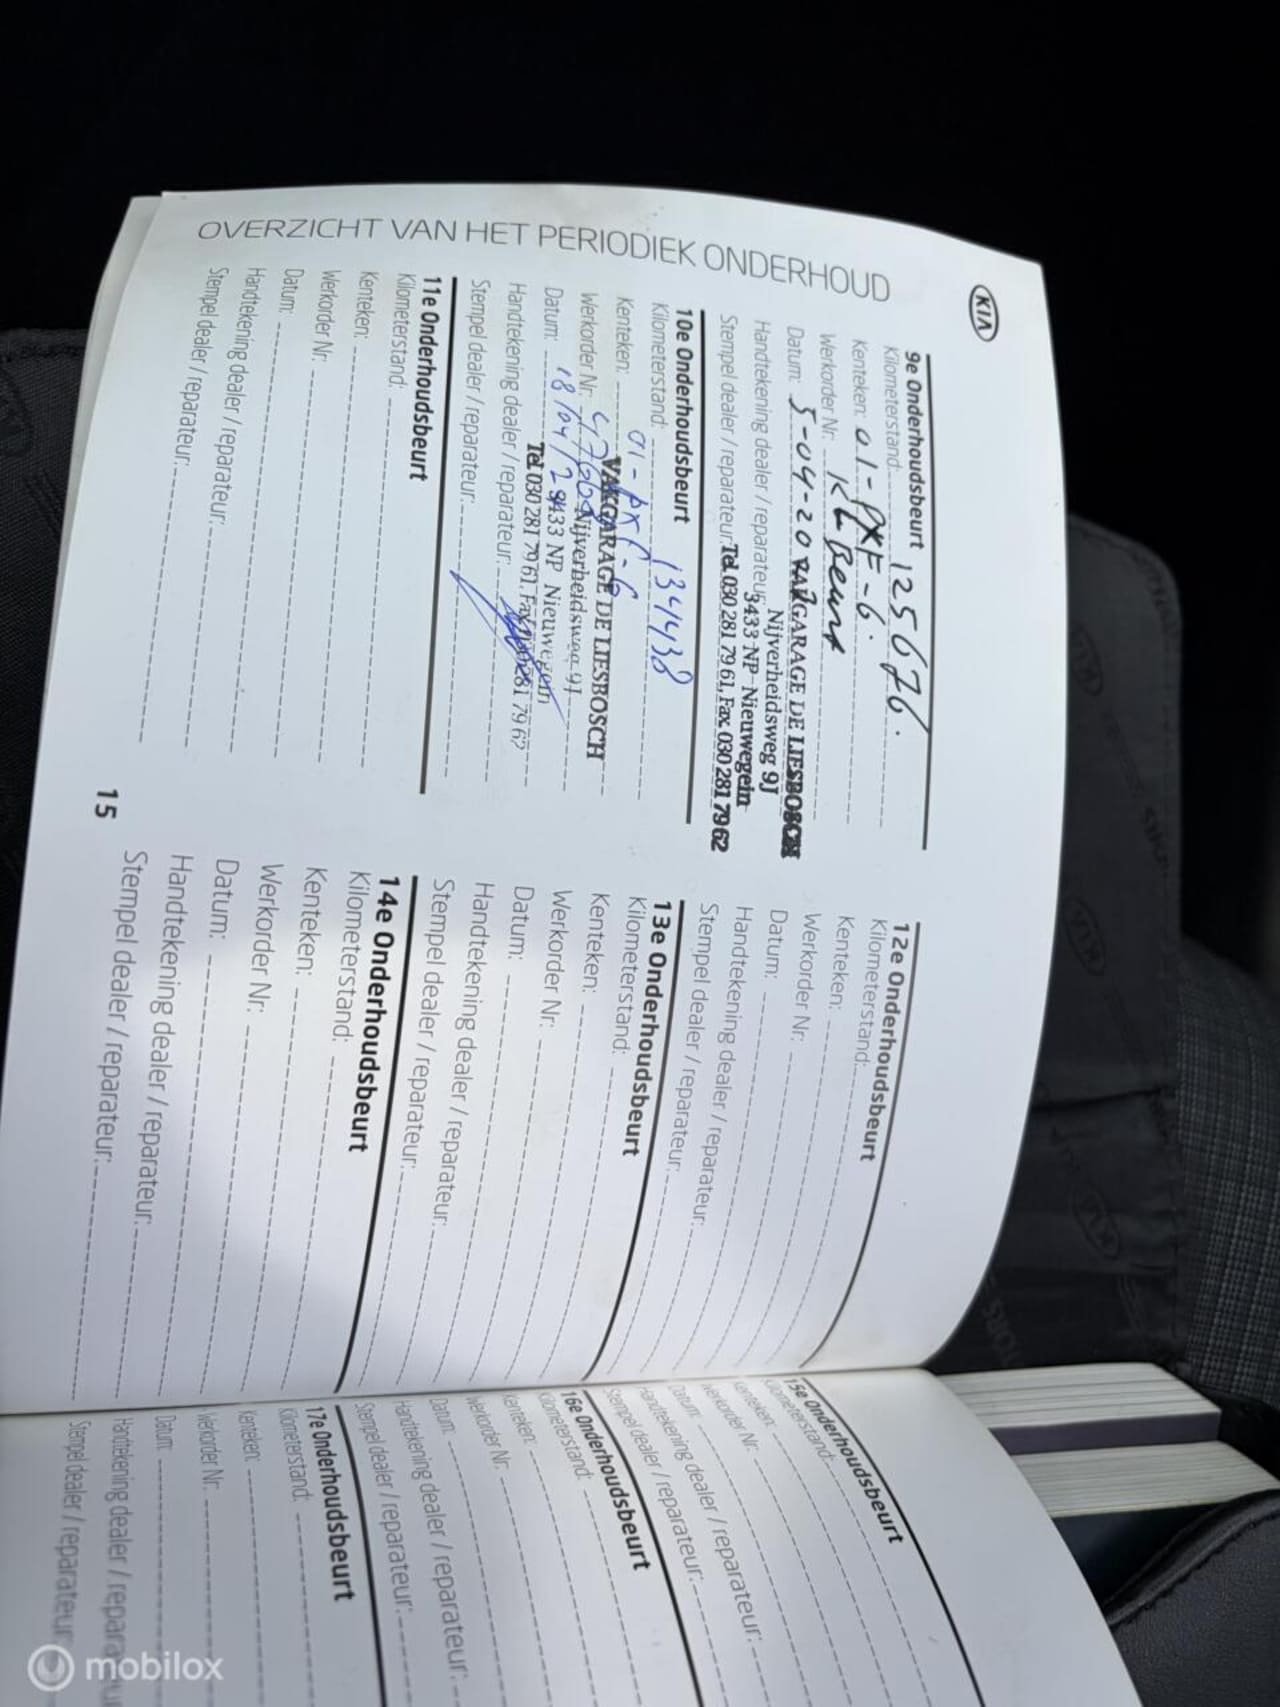 KIA
OVERZICHT VAN HET PERIODIEK ONDERHOUD
9e Onderhoudsbeurt
Kilometerstand: 125676.
Kenteken: 01-PXF-6.
Werkorder Nr: KL Beurt
Datum: 5-04-20
VAKGARAGE DE LIESBOSCH
Nijverheidsweg 9J
Handtekening dealer / reparateur:
3433 NP Nieuwegein
Stempel dealer / reparateur:
Tel. 030 281 79 61, Fax. 030 281 79 62
10e Onderhoudsbeurt
Kilometerstand: 134438
Kenteken: 01-PXF-6
VAKGARAGE DE LIESBOSCH
Werkorder Nr:
Nijverheidsweg 9J
Datum: 18/04/2
3433 NP Nieuwegein
Tel. 030 281 79 61, Fax. 030 281 79 62
Handtekening dealer / reparateur:
Stempel dealer / reparateur:
11e Onderhoudsbeurt
Kilometerstand:
Kenteken:
Werkorder Nr:
Datum:
Handtekening dealer / reparateur:
Stempel dealer / reparateur:
12e Onderhoudsbeurt
Kilometerstand:
Kenteken:
Werkorder Nr:
Datum:
Handtekening dealer / reparateur:
Stempel dealer / reparateur:
13e Onderhoudsbeurt
Kilometerstand:
Kenteken:
Werkorder Nr:
Datum:
Handtekening dealer / reparateur:
Stempel dealer / reparateur:
14e Onderhoudsbeurt
Kilometerstand:
Kenteken:
Werkorder Nr:
Datum:
Handtekening dealer / reparateur:
Stempel dealer / reparateur:
15
15e Onderhoudsbeurt
Kilometerstand:
Kenteken:
Werkorder Nr:
Datum:
Handtekening dealer / reparateur:
Stempel dealer / reparateur:
16e Onderhoudsbeurt
Kilometerstand:
Kenteken:
Werkorder Nr:
Datum:
Handtekening dealer / reparateur:
Stempel dealer / reparateur:
17e Onderhoudsbeurt
Kilometerstand:
Kenteken:
Werkorder Nr:
Datum:
Handtekening dealer / reparateur:
Stempel dealer / reparateur:
mobilox